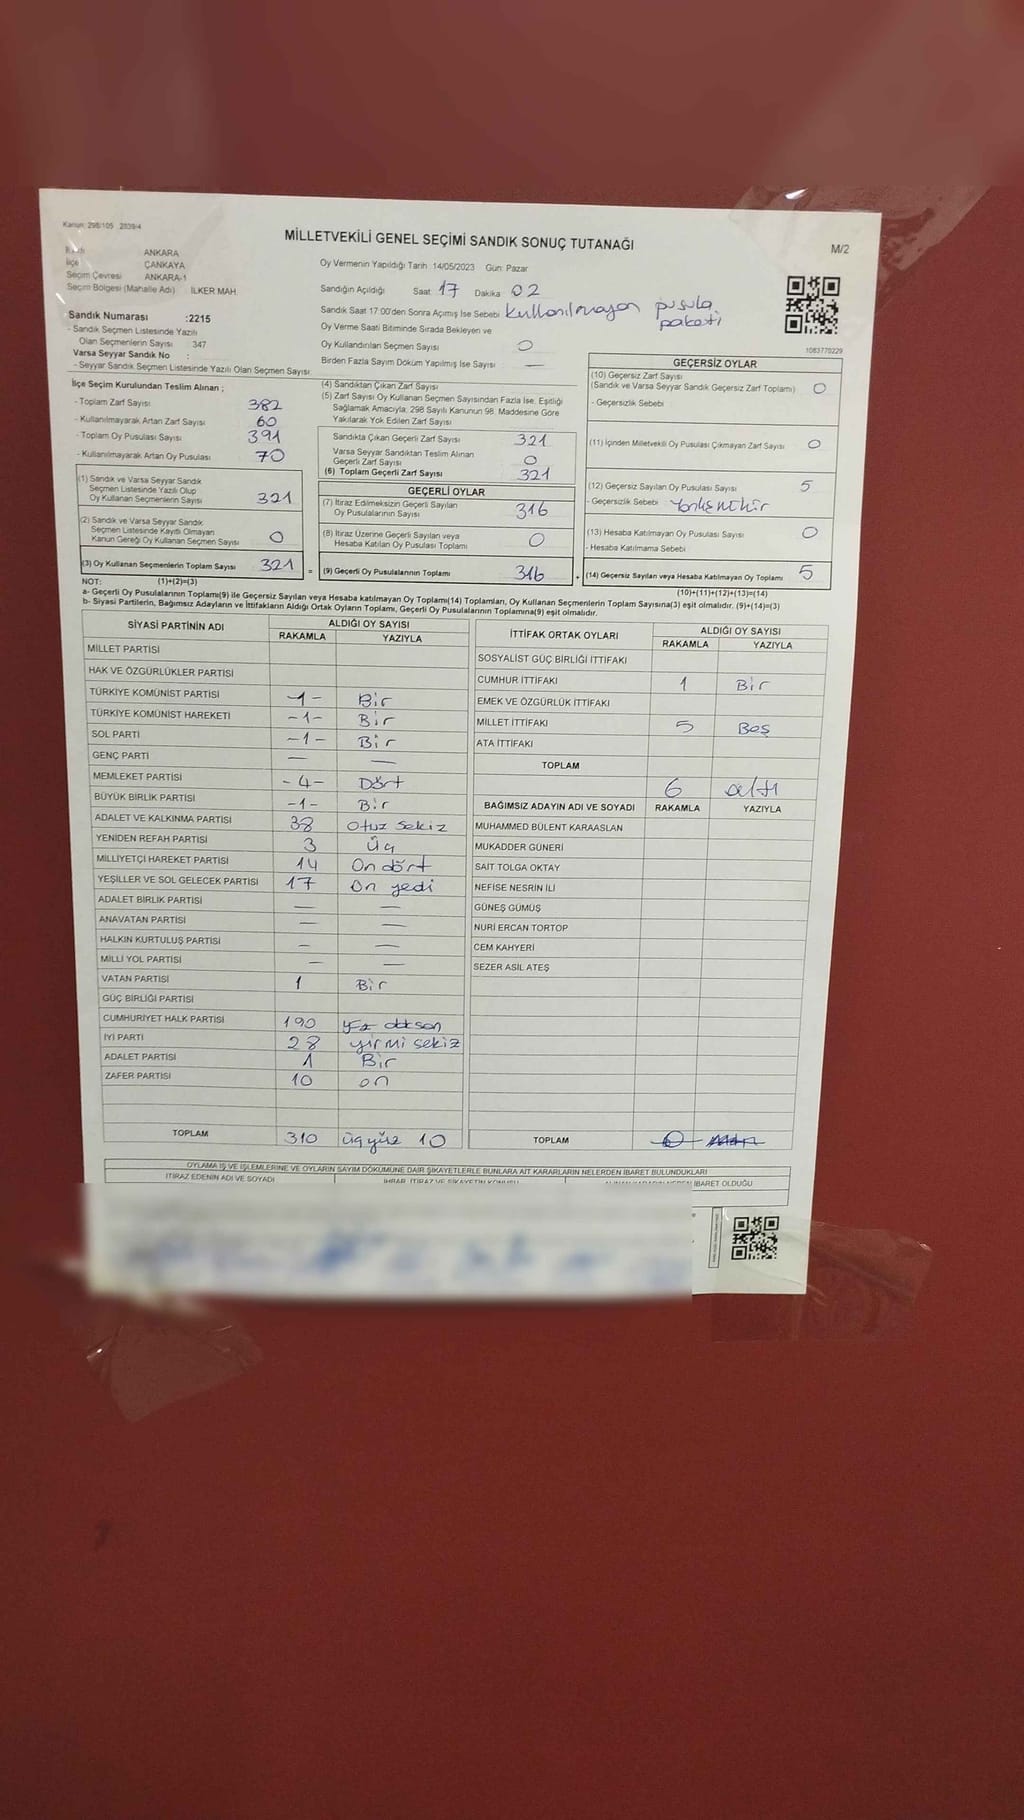 Kanun: 298/105 2839/4
MİLLETVEKİLİ GENEL SEÇİMİ SANDIK SONUÇ TUTANAĞI
M/2
İli ANKARA
İlçe ÇANKAYA
Seçim Çevresi ANKARA-1
Seçim Bölgesi (Mahalle Adı) İLKER MAH.
Oy Vermenin Yapıldığı Tarih 14/05/2023 Gün: Pazar
Sandığın Açıldığı Saat 17 Dakika 02
Sandık Saat 17:00'den Sonra Açımış İse Sebebi kullanılmayan pusula paketi
Oy Verme Saati Bitiminde Sırada Bekleyen ve
Oy Kullandırılan Seçmen Sayısı 0
Birden Fazla Sayım Döküm Yapılmış İse Sayısı —
1083770229
Sandık Numarası :2215
- Sandık Seçmen Listesinde Yazılı
Olan Seçmenlerin Sayısı 347
Varsa Seyyar Sandık No :
- Seyyar Sandık Seçmen Listesinde Yazılı Olan Seçmen Sayısı:
İlçe Seçim Kurulundan Teslim Alınan ;
- Toplam Zarf Sayısı 382
- Kullanılmayarak Artan Zarf Sayısı 60
- Toplam Oy Pusulası Sayısı 391
- Kullanılmayarak Artan Oy Pusulası 70
(1) Sandık ve Varsa Seyyar Sandık
Seçmen Listesinde Yazılı Olup
Oy Kullanan Seçmenlerin Sayısı 321
(2) Sandık ve Varsa Seyyar Sandık
Seçmen Listesinde Kayıtlı Olmayan
Kanun Gereği Oy Kullanan Seçmen Sayısı 0
(3) Oy Kullanan Seçmenlerin Toplam Sayısı 321 =
(4) Sandıktan Çıkan Zarf Sayısı
(5) Zarf Sayısı Oy Kullanan Seçmen Sayısından Fazla İse, Eşitliği
Sağlamak Amacıyla, 298 Sayılı Kanunun 98. Maddesine Göre
Yakılarak Yok Edilen Zarf Sayısı
Sandıkta Çıkan Geçerli Zarf Sayısı 321
Varsa Seyyar Sandıktan Teslim Alınan
Geçerli Zarf Sayısı 0
(6) Toplam Geçerli Zarf Sayısı 321
GEÇERLİ OYLAR
(7) İtiraz Edilmeksizin Geçerli Sayılan
Oy Pusulalarının Sayısı 316
(8) İtiraz Üzerine Geçerli Sayılan veya
Hesaba Katılan Oy Pusulası Toplamı 0
(9) Geçerli Oy Pusulalarının Toplamı 316 +
GEÇERSİZ OYLAR
(10) Geçersiz Zarf Sayısı
(Sandık ve Varsa Seyyar Sandık Geçersiz Zarf Toplamı) 0
- Geçersizlik Sebebi
(11) İçinden Milletvekili Oy Pusulası Çıkmayan Zarf Sayısı 0
(12) Geçersiz Sayılan Oy Pusulası Sayısı 5
- Geçersizlik Sebebi
(13) Hesaba Katılmayan Oy Pusulası Sayısı 0
- Hesaba Katılmama Sebebi
(14) Geçersiz Sayılan veya Hesaba Katılmayan Oy Toplamı 5
NOT: (1)+(2)=(3) (10)+(11)+(12)+(13)=(14)
a- Geçerli Oy Pusulalarının Toplamı(9) ile Geçersiz Sayılan veya Hesaba katılmayan Oy Toplamı(14) Toplamları, Oy Kullanan Seçmenlerin Toplam Sayısına(3) eşit olmalıdır. (9)+(14)=(3)
b- Siyasi Partilerin, Bağımsız Adayların ve İttifakların Aldığı Ortak Oyların Toplamı, Geçerli Oy Pusulalarının Toplamına(9) eşit olmalıdır.
SİYASİ PARTİNİN ADI ALDIĞI OY SAYISI
RAKAMLA YAZIYLA
MİLLET PARTİSİ
HAK VE ÖZGÜRLÜKLER PARTİSİ
TÜRKİYE KOMÜNİST PARTİSİ -1- Bir
TÜRKİYE KOMÜNİST HAREKETİ -1- Bir
SOL PARTİ -1- Bir
GENÇ PARTİ — —
MEMLEKET PARTİSİ -4- Dört
BÜYÜK BİRLİK PARTİSİ -1- Bir
ADALET VE KALKINMA PARTİSİ 38 otuz sekiz
YENİDEN REFAH PARTİSİ 3 Üç
MİLLİYETÇİ HAREKET PARTİSİ 14 On dört
YEŞİLLER VE SOL GELECEK PARTİSİ 17 On yedi
ADALET BİRLİK PARTİSİ — —
ANAVATAN PARTİSİ — —
HALKIN KURTULUŞ PARTİSİ — —
MİLLİ YOL PARTİSİ — —
VATAN PARTİSİ 1 Bir
GÜÇ BİRLİĞİ PARTİSİ
CUMHURİYET HALK PARTİSİ 190 yüz doksan
İYİ PARTİ 28 yirmi sekiz
ADALET PARTİSİ 1 Bir
ZAFER PARTİSİ 10 on
TOPLAM 310 üçyüz 10
İTTİFAK ORTAK OYLARI ALDIĞI OY SAYISI
RAKAMLA YAZIYLA
SOSYALİST GÜÇ BİRLİĞİ İTTİFAKI
CUMHUR İTTİFAKI 1 Bir
EMEK VE ÖZGÜRLÜK İTTİFAKI
MİLLET İTTİFAKI 5 Beş
ATA İTTİFAKI
TOPLAM
6 altı
BAĞIMSIZ ADAYIN ADI VE SOYADI RAKAMLA YAZIYLA
MUHAMMED BÜLENT KARAASLAN
MUKADDER GÜNERİ
SAİT TOLGA OKTAY
NEFİSE NESRİN İLİ
GÜNEŞ GÜMÜŞ
NURİ ERCAN TORTOP
CEM KAHYERİ
SEZER ASİL ATEŞ
TOPLAM
OYLAMA İŞ VE İŞLEMLERİNE VE OYLARIN SAYIM DÖKÜMÜNE DAİR ŞİKAYETLERLE BUNLARA AİT KARARLARIN NELERDEN İBARET BULUNDUKLARI
İTİRAZ EDENİN ADI VE SOYADI İHBAR, İTİRAZ VE ŞİKAYETİN KONUSU İBARET OLDUĞU